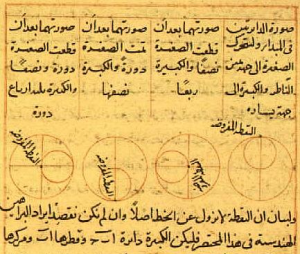 صورة الدائرتين
في المبدا وليتحرك
الصغيرة الى جهة يمين
الناظر والكبيرة الى
جهة يساره
صورتهما بعد أن
قطعت الصغيرة
نصفا والكبيرة
ربعا
صورتهما بعد أن
تمت الصغيرة
دورة والكبيرة
نصفها
صورتهما بعد أن
قطعت الصغيرة
دورة ونصفا
والكبيرة ثلثة ارباع
دورة
النقطة المفروضة
النقطة المفروضة
النقطة المفروضة
ولبيان ان النقطة لا تزول عن الخط اصلا وان لم نكن نقصد ايراد البراهين
الهندسية في هذا المختصر فليكن الكبيرة دائرة ا ب ج وقطرها ا ب ومركزها